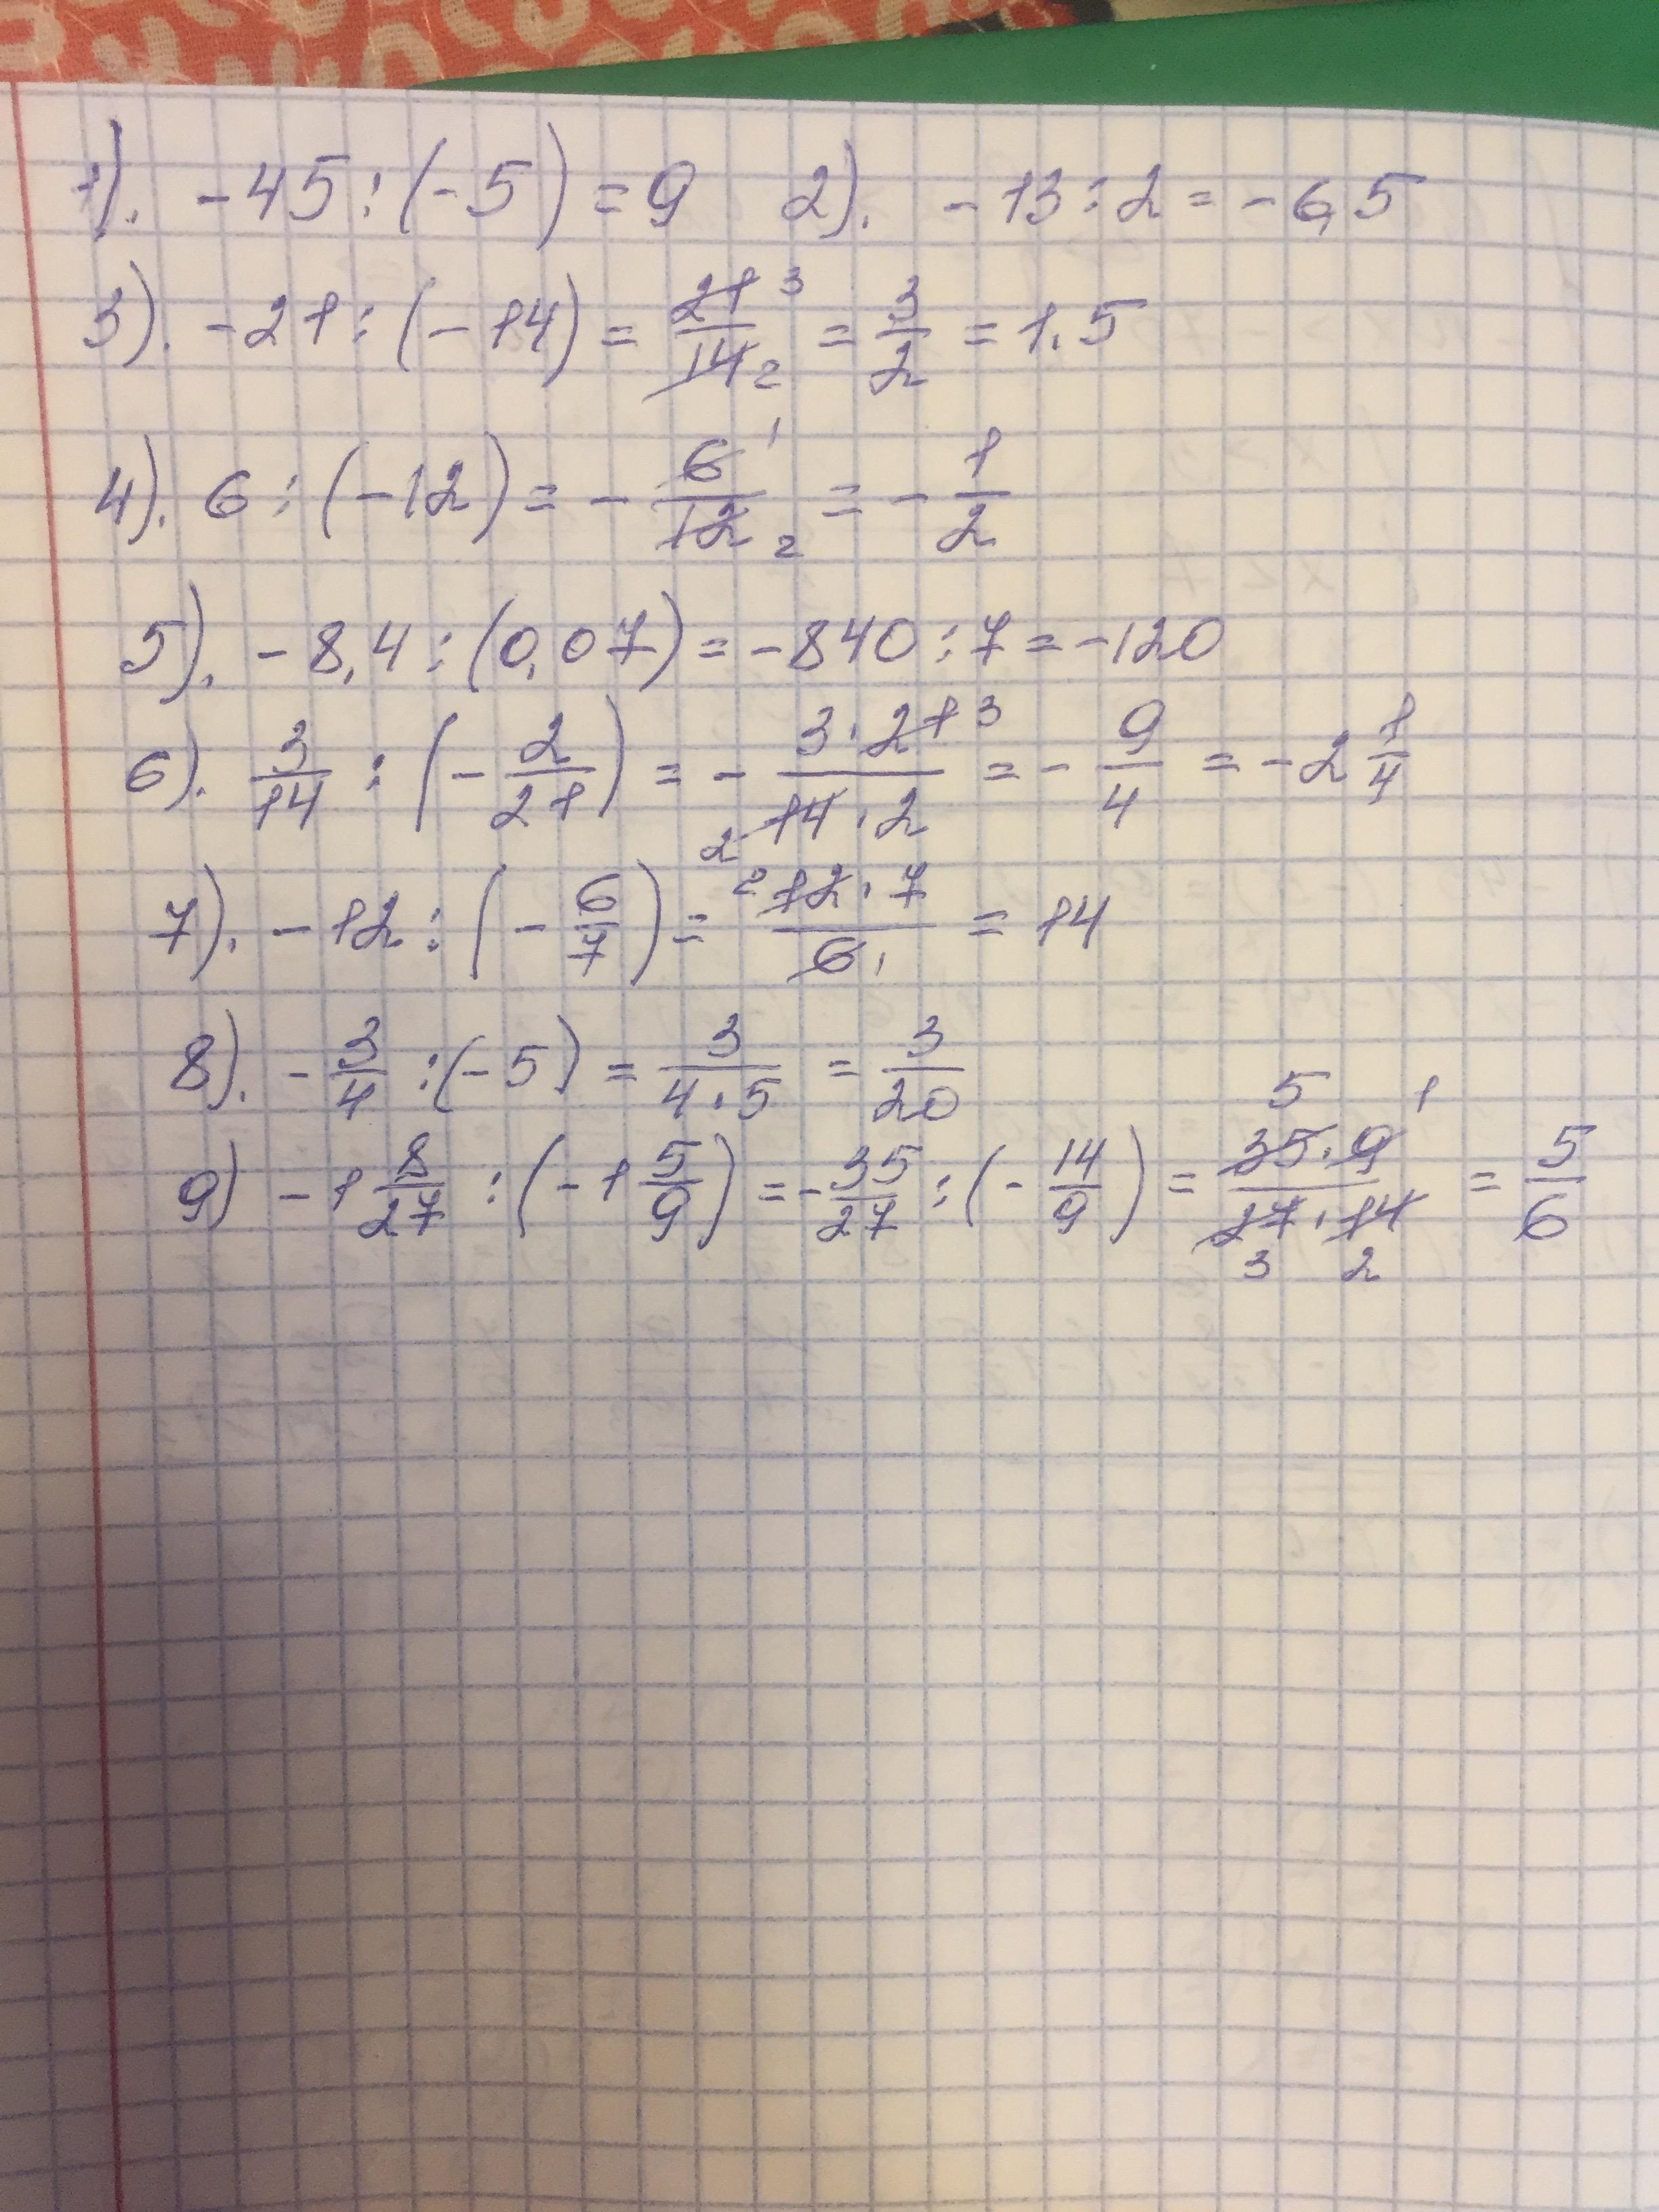 1). -45 : (-5) = 9   2). -13 : 2 = -6,5
3). -21 : (-14) = 21 3/14 2 = 3/2 = 1.5
4). 6 : (-12) = - 6 1/12 2 = - 1/2
5). -8,4 : (0,07) = -840 : 7 = -120
6). 3/14 : (- 2/21) = - 3 · 21 3/2 14 · 2 = - 9/4 = -2 1/4
7). -12 : (- 6/7) = 2 12 · 7/6 1 = 14
8). - 3/4 : (-5) = 3/4 · 5 = 3/20
9) -1 8/27 : (-1 5/9) = - 35/27 : (- 14/9) = 5 1 35 · 9/27 · 14 3 2 = 5/6